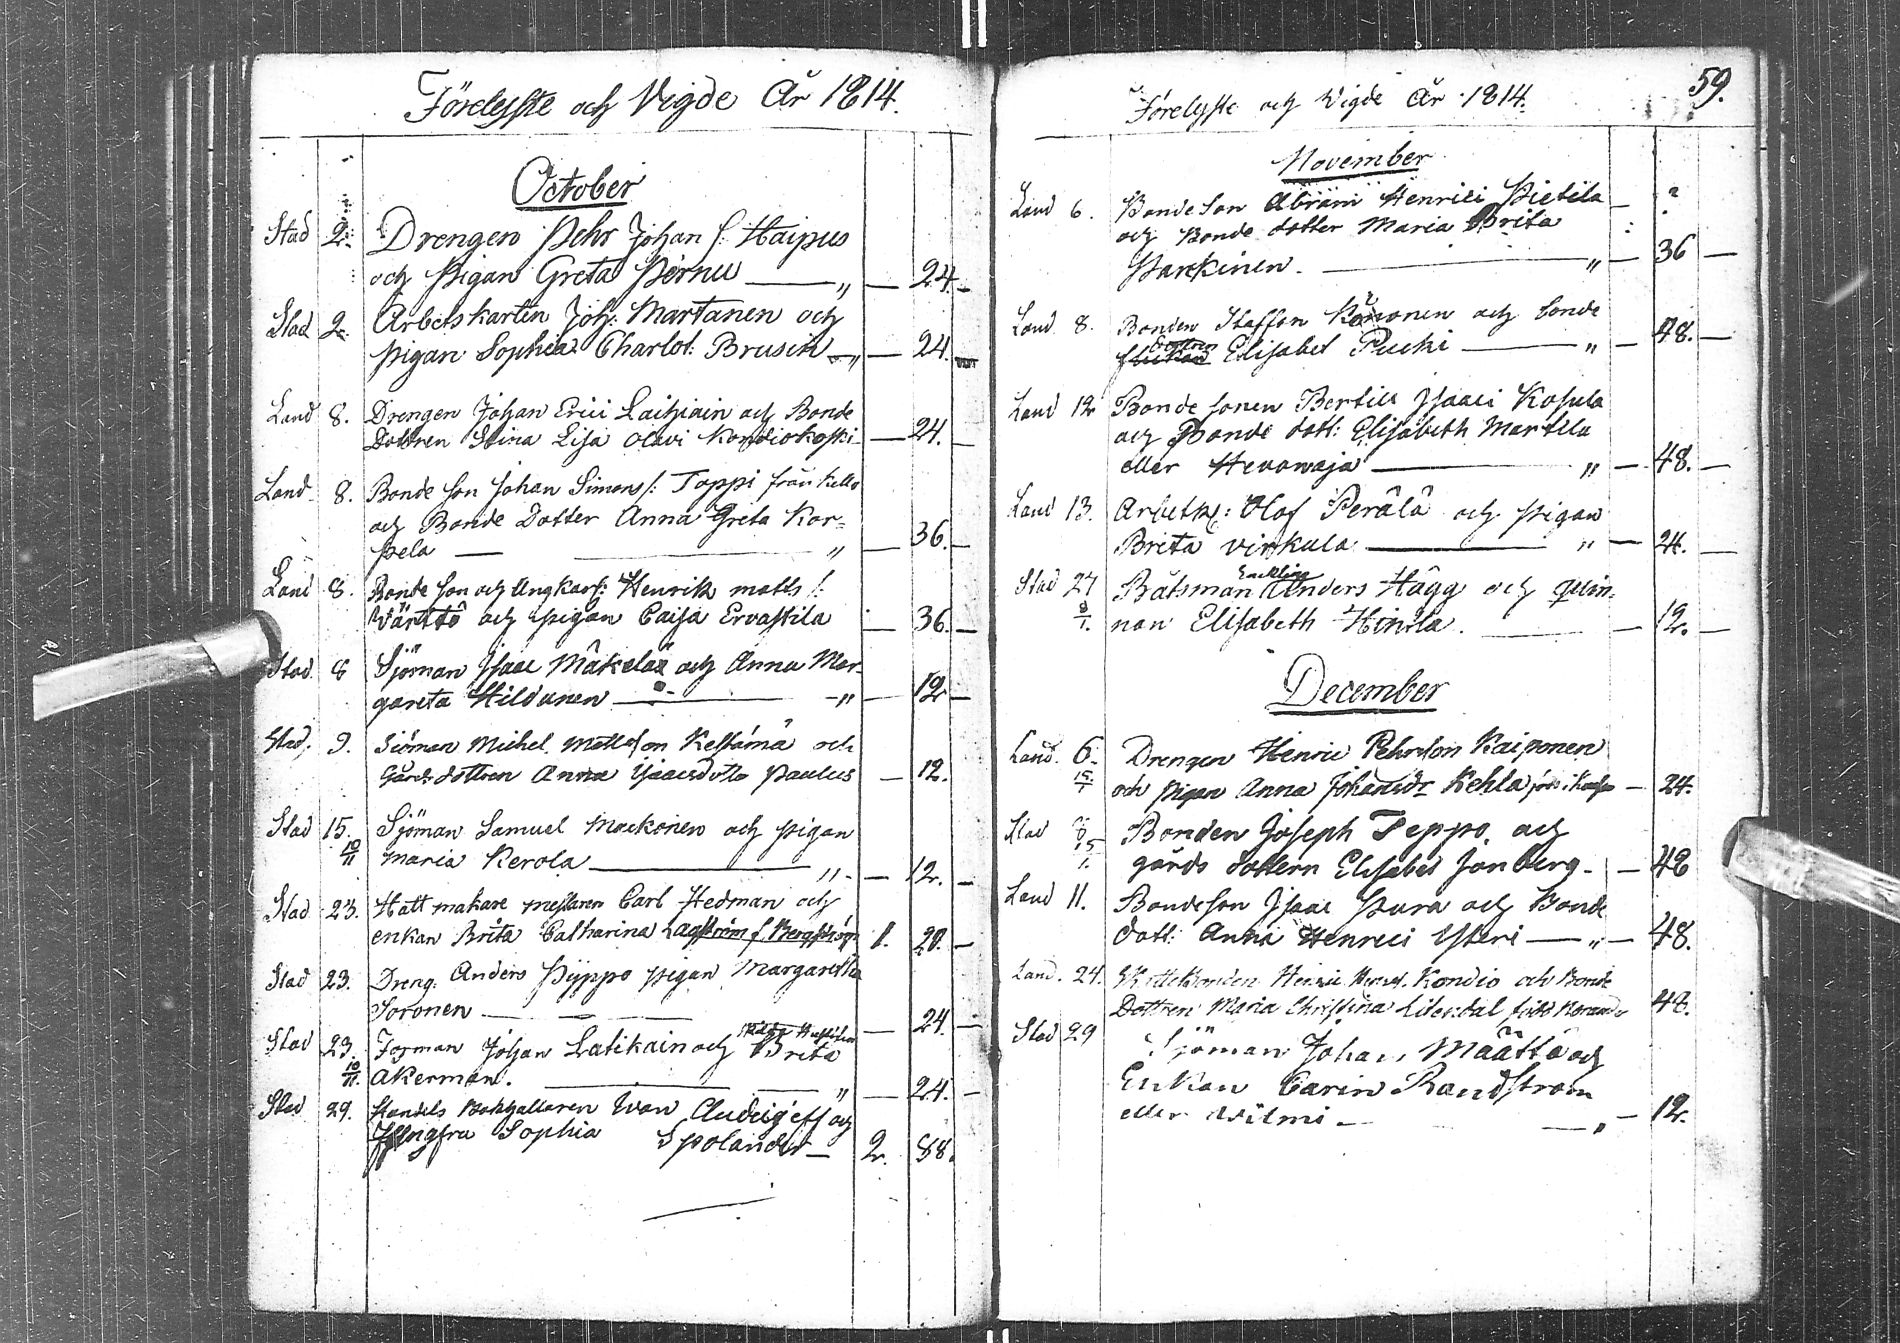 Förelyste och Vigde År 1814.
October
Stad 2. Drengen Pehr Johan s: Haipus
och Pigan Greta Pernu — „ — 24.
Stad 2. Arbetskarlen Joh: Martanen och
Pigan Sophia Charlot: Brusin — „ — 24.
Land 8. Drengen Johan Erici Laitziain och Bonde
Dottren Stina Lisa Olavi Kondiokoski — 24.
Land 8. Bonde son Johan Simons s: Toppi från Kello
och Bonde Dotter Anna Greta Kor=
pela — „ — 36.
Land 8. Bonde son och Ungkarl: Henrik Matts s:
Värttö och pigan Caisa Ervastila — 36.
Stad 8 Sjöman Isaac Mäkelä och Anna Mar-
gareta Hildunen — „ — 12
Stad. 9. Siöman Michel Mattsson Kestämä och
Gårds dottren Anna Isaacsdotter Paulus — 12.
Stad 15. Sjöman Samuel Mackonen och pigan
10/11 Maria Kerola — „ — 12.
Stad 23. Hattmakare mästaren Carl Hedman och
enkan Brita Catharina Lagström f. Bergström 1. 20.
Stad 23. Dreng: Anders Pyppo pigan Margaretha
Soronen — 24.
Stad 23. Forman Johan Latikain och Brita
10/11. Akerman. — „ — 24.
Stad 29. Handels Bokhallaren Ivan och
Jungfru Sophia Spolander — 2. 88.
Förelyste och Vigde År 1814. 59.
November
Land 6. Bonde Son Abram Henrici Pietila — ?
och Bonde dotter Maria Brita
Parkinen. — „ — 36 —
Land 8. Bonden Staffan Könönen och bonde
dottren
Elisabet Puchi — „ — 48. —
Land 12 Bonde sonen Bertill Isaaci Kosula
och Bonde dott: Elisabeth Martila
eller Hevowaja — „ — 48. —
Land 13. Arbetk: Olof Perälä och pigan
Brita Virkula — „ — 24. —
Stad 27 Båtsman Anders Hägg och Quin-
nan Elisabeth Hintla. — 12. —
December
Land. 6. Drengen Henric Pehrsson Kaiponen
15/1 och pigan Anna Johansdr Kehla — 24.
Stad 8 Bonden Joseph Teppo och
15/1. gårds dottern Elisabet Jonberg. — 48
Land 11. Bondeson Isaac Pura och Bonde
dott: Anna Henrici Ylieri — „ — 48.
Land. 24. Henric Kondio och Bonde
Dottren Maria Christina Liliendal 48.
Stad 29 Sjöman Johan Määttä och
Enkan Carin Randström
eller Wilmi — „ — 12.